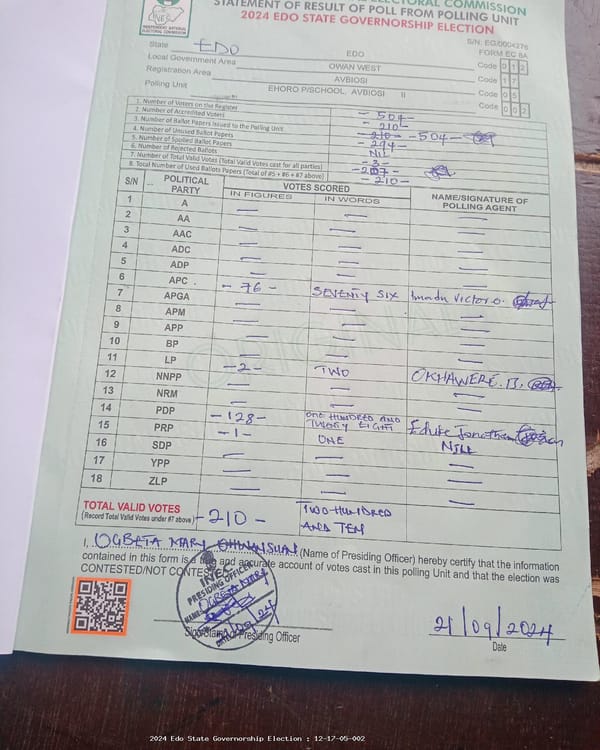 INDEPENDENT NATIONAL
ELECTORAL COMMISSION
ELECTORAL COMMISSION
STATEMENT OF RESULT OF POLL FROM POLLING UNIT
2024 EDO STATE GOVERNORSHIP ELECTION
FORM EC 8A
State EDO EDO Code 0 1 2
Local Government Area OWAN WEST Code 1 7
Registration Area AVBIOSI Code 0 5
Polling Unit EHORO P/SCHOOL, AVBIOSI II Code 0 0 2
1. Number of Voters on the Register - 504 -
2. Number of Accredited Voters - 210 -
3. Number of Ballot Papers Issued to the Polling Unit - 210 - - 504 -
4. Number of Unused Ballot Papers - 294 -
5. Number of Spoiled Ballot Papers NIL
6. Number of Rejected Ballots - 3 -
7. Number of Total Valid Votes (Total Valid Votes cast for all parties) - 207 -
8. Total Number of Used Ballots Papers (Total of #5 + #6 + #7 above) - 210 -
S/N POLITICAL PARTY VOTES SCORED NAME/SIGNATURE OF POLLING AGENT
IN FIGURES IN WORDS
1 A — — —
2 AA — — —
3 AAC — — —
4 ADC — — —
5 ADP — — —
6 APC - 76 - SEVENTY SIX Imadu Victor O.
7 APGA — — —
8 APM — — —
9 APP — — —
10 BP — — —
11 LP - 2 - TWO OKHAWERE. B,
12 NNPP — — —
13 NRM — — —
14 PDP - 128 - ONE HUNDRED AND TWENTY EIGHT Jonathan
15 PRP - 1 - ONE NILL
16 SDP — — —
17 YPP — — —
18 ZLP — — —
TOTAL VALID VOTES - 210 - TWO HUNDRED AND TEN
(Record Total Valid Votes under #7 above)
I, OGBETA MARY (Name of Presiding Officer) hereby certify that the information
contained in this form is a true and accurate account of votes cast in this polling Unit and that the election was
CONTESTED/NOT CONTESTED
INEC
PRESIDING OFFICER
NAME: OGBETA MARY
Presiding Officer
21/09/2024
Date
2024 Edo State Governorship Election : 12-17-05-002